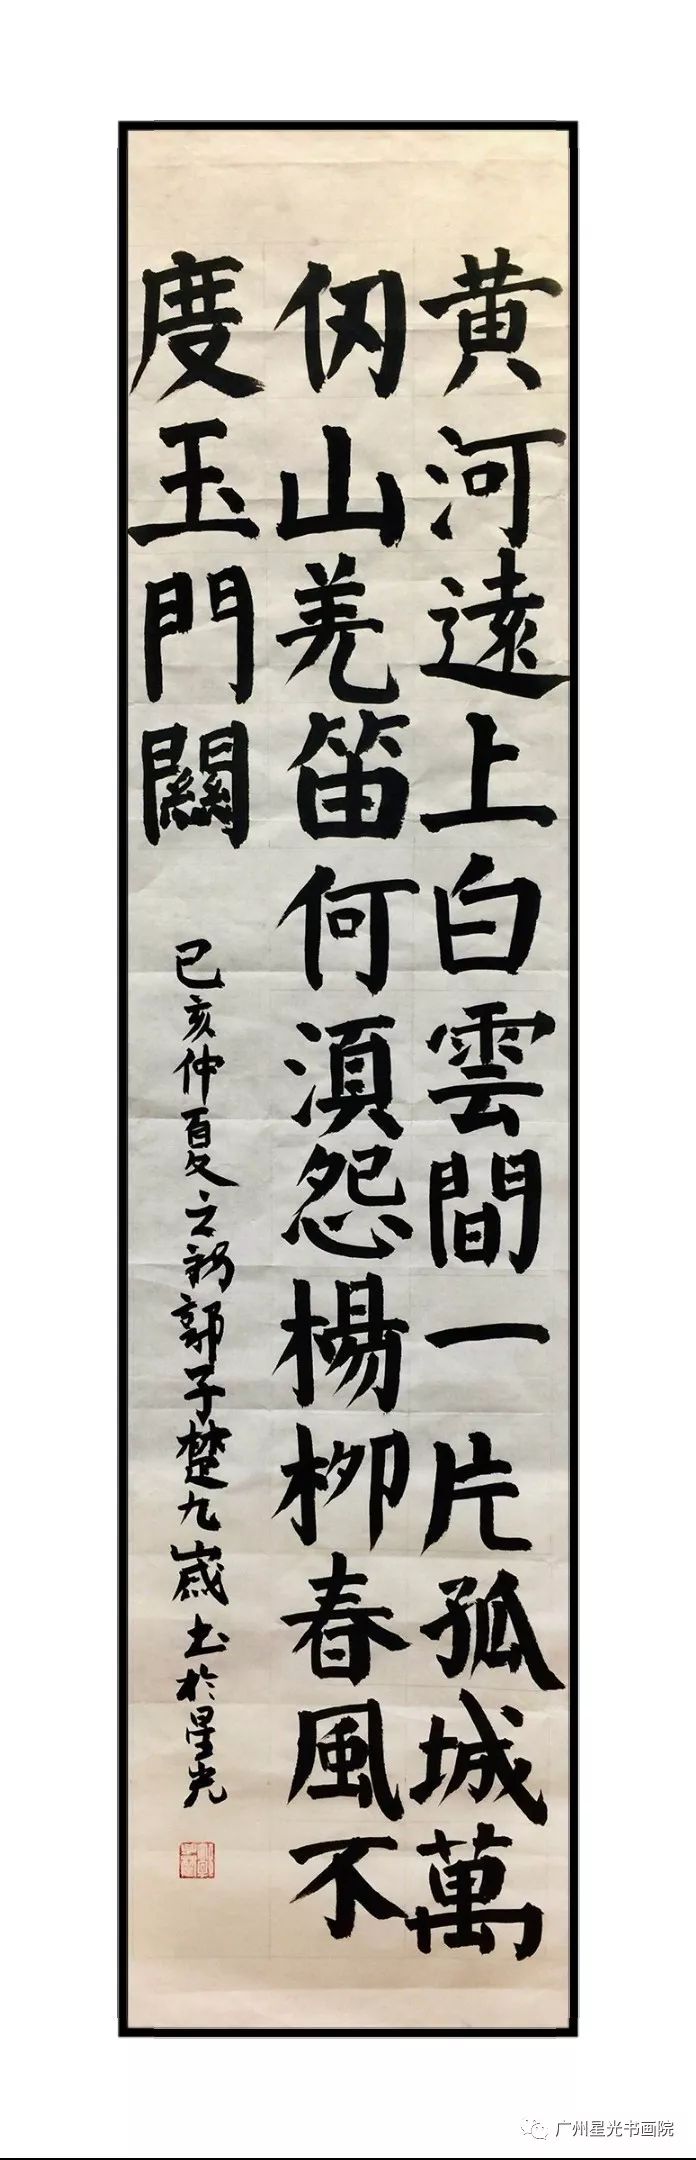 黄河遠上白雲間一片孤城萬
仞山羌笛何湏怨楊柳春風不
度玉門關
己亥仲夏之初郭子楚九歲书於星光
广州星光书画院